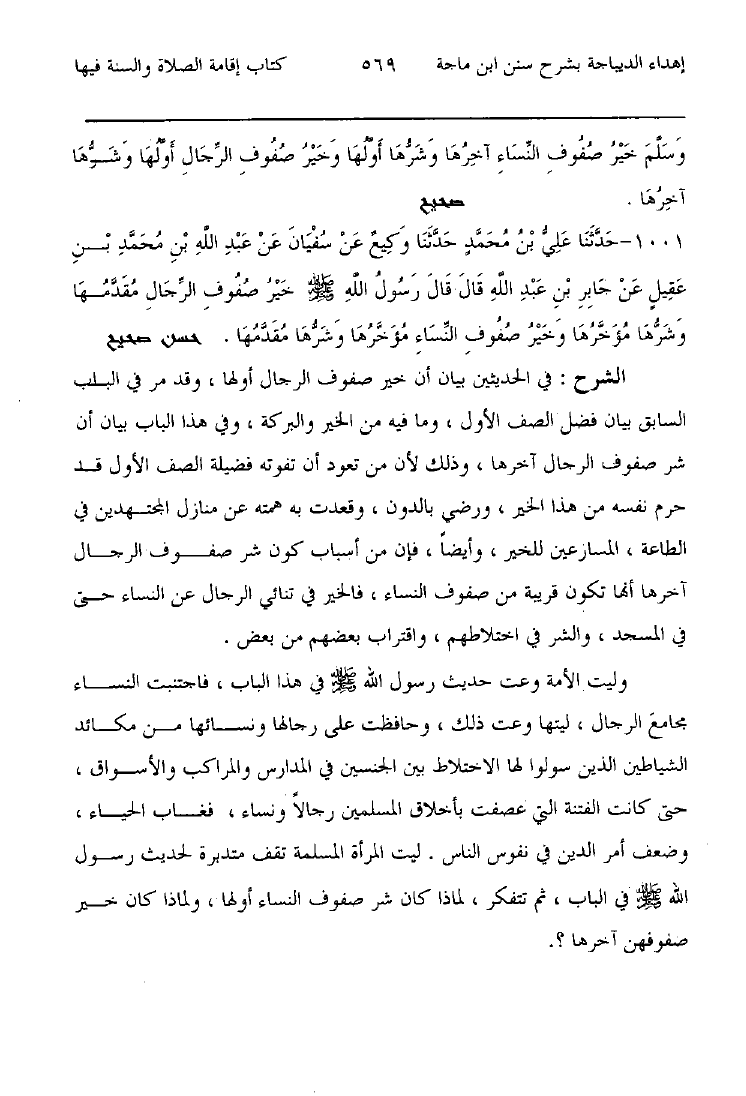 إهداء الديباجة بشرح سنن ابن ماجة ٥٦٩ كتاب إقامة الصلاة والسنة فيها
وَسَلَّمَ خَيْرُ صُفُوفِ النِّسَاءِ آخِرُهَا وَشَرُّهَا أَوَّلُهَا وَخَيْرُ صُفُوفِ الرِّجَالِ أَوَّلُهَا وَشَــرُّهَا
آخِرُهَا . صحيح
١٠٠١-حَدَّثَنَا عَلِيُّ بْنُ مُحَمَّدٍ حَدَّثَنَا وَكِيعٌ عَنْ سُفْيَانَ عَنْ عَبْدِ اللَّهِ بْنِ مُحَمَّدِ بْــنِ
عَقِيلٍ عَنْ جَابِرِ بْنِ عَبْدِ اللَّهِ قَالَ قَالَ رَسُولُ اللَّهِ ﷺ خَيْرُ صُفُوفِ الرِّجَالِ مُقَدَّمُــهَا
وَشَرُّهَا مُؤَخَّرُهَا وَخَيْرُ صُفُوفِ النِّسَاءِ مُؤَخَّرُهَا وَشَرُّهَا مُقَدَّمُهَا . حسن صحيح
الشرح : في الحديثين بيان أن خير صفوف الرجال أولها ، وقد مر في الباب
السابق بيان فضل الصف الأول ، وما فيه من الخير والبركة ، وفي هذا الباب بيان أن
شر صفوف الرجال آخرها ، وذلك لأن من تعود أن تفوته فضيلة الصف الأول قــد
حرم نفسه من هذا الخير ، ورضي بالدون ، وقعدت به همته عن منازل المجتــهدين في
الطاعة ، المسارعين للخير ، وأيضاً ، فإن من أسباب كون شر صفــوف الرجــال
آخرها أنها تكون قريبة من صفوف النساء ، فالخير في تنائي الرجال عن النساء حــتى
في المسجد ، والشر في اختلاطهم ، واقتراب بعضهم من بعض .
وليت الأمة وعت حديث رسول الله ﷺ في هذا الباب ، فاجتنبت النســاء
مجامعَ الرجال ، ليتها وعت ذلك ، وحافظت على رجالها ونســائها مــن مكــائد
الشياطين الذين سولوا لها الاختلاط بين الجنسين في المدارس والمراكب والأســواق ،
حتى كانت الفتنة التي عصفت بأخلاق المسلمين رجالاً ونساء ، فغــاب الحيــاء ،
وضعف أمر الدين في نفوس الناس . ليت المرأة المسلمة تقف متدبرة لحديث رســول
الله ﷺ في الباب ، ثم تتفكر ، لماذا كان شر صفوف النساء أولها ، ولماذا كان خــير
صفوفهن آخرها ؟.